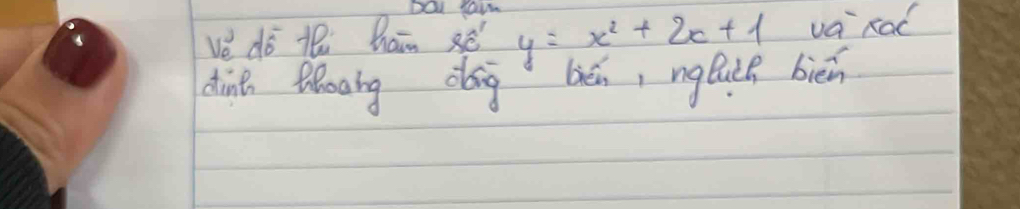 Bài làm
Vẽ đồ thị hàm số y = x² + 2x + 1 và xác
định khoảng đồng biến, nghịch biến